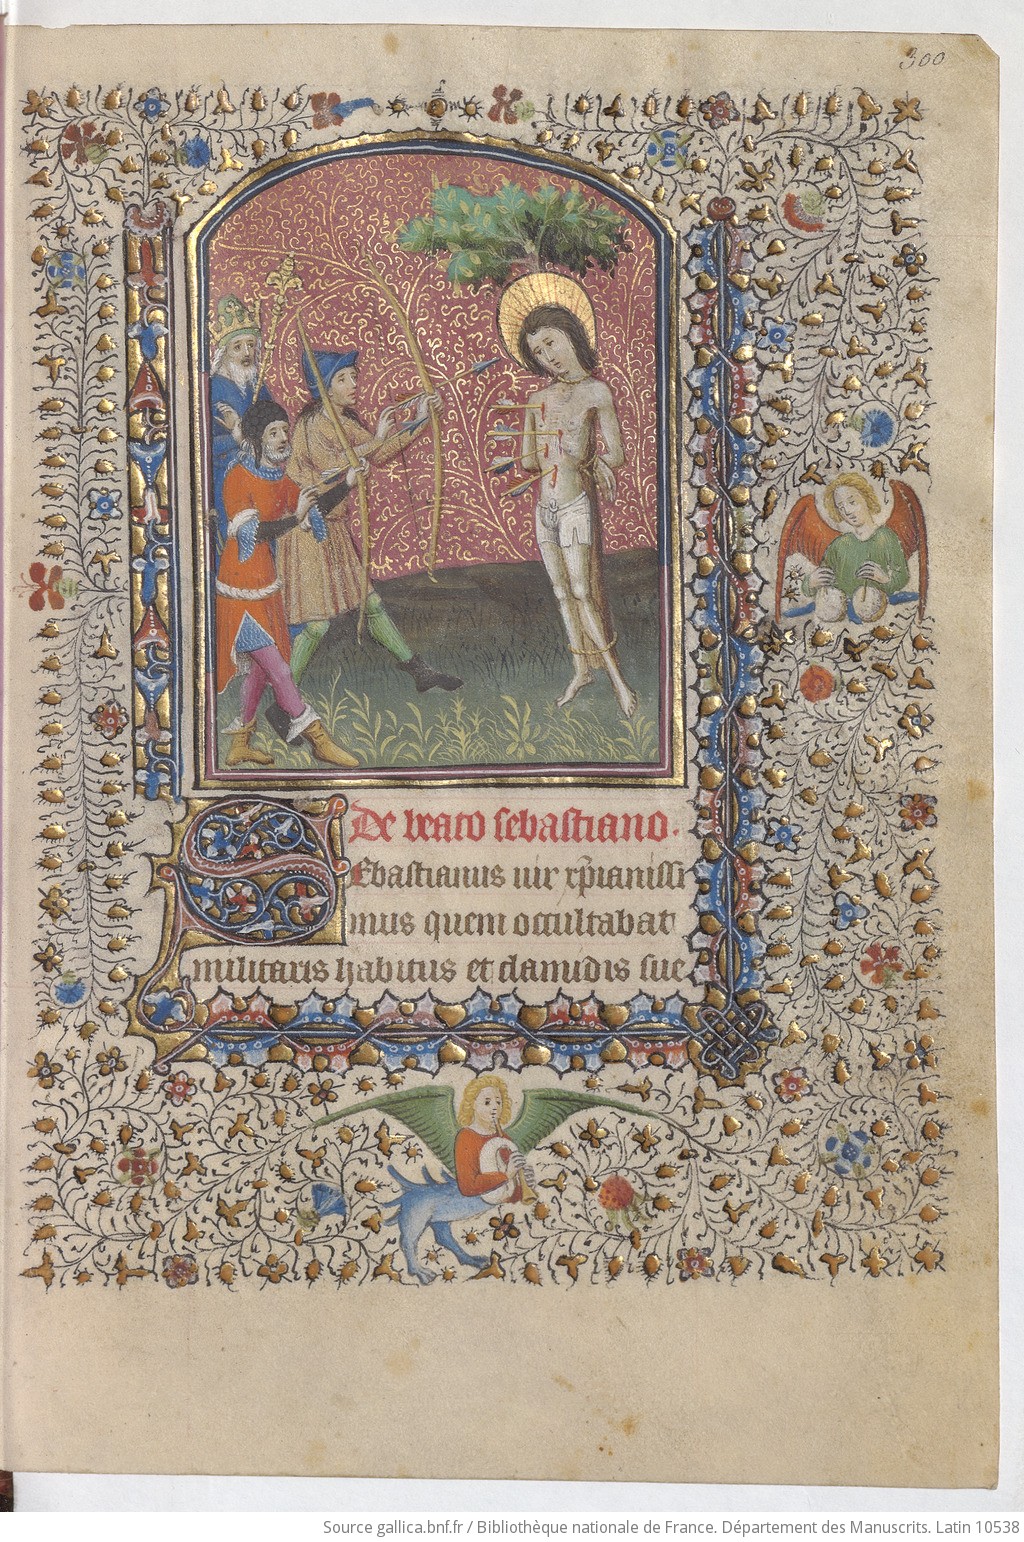 300
De beato sebastiano.
Sebastianus uir xp̄ianissi
mus quem occultabat
militaris habitus et clamidis sue
Source gallica.bnf.fr / Bibliothèque nationale de France. Département des Manuscrits. Latin 10538